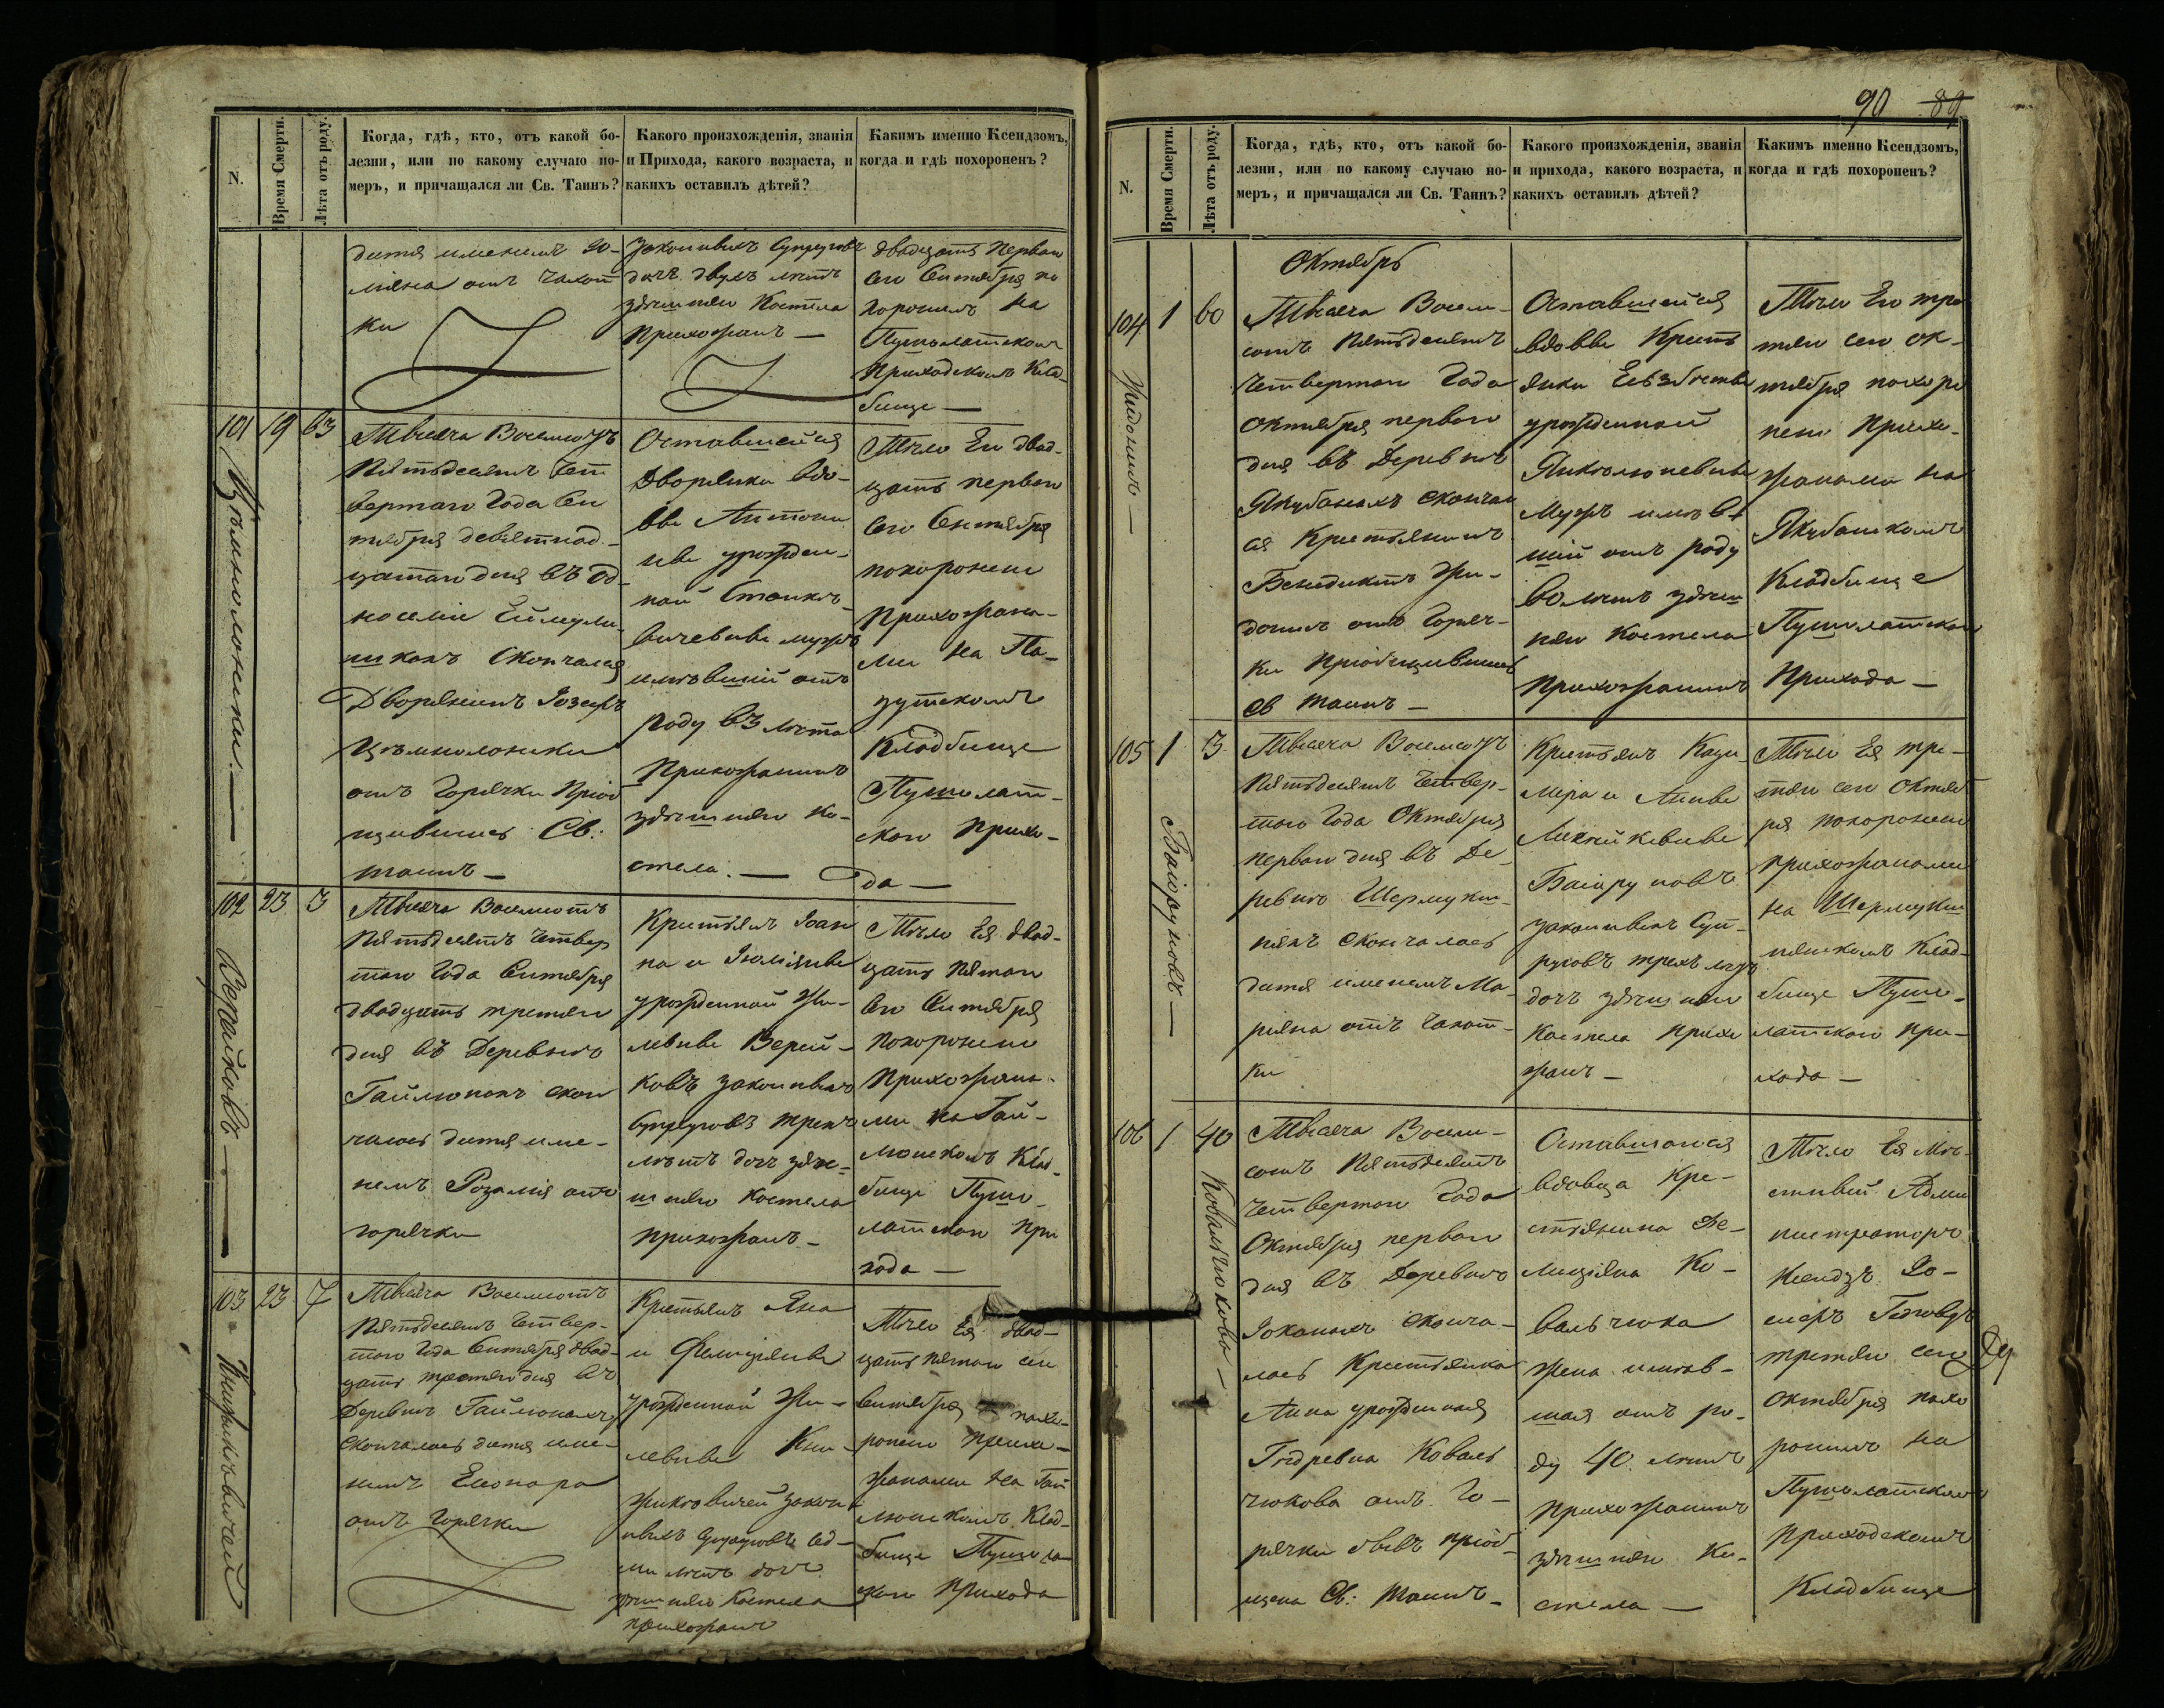 N.
Время Смерти.
Лѣта отъ роду.
Когда, гдѣ, кто, отъ какой бо-
лезни, или по какому случаю по-
меръ, и причащался ли Св. Таинъ?
Какого произхожденія, званія
и Прихода, какого возраста, и
какихъ оставилъ дѣтей?
Какимъ именно Ксендзомъ,
когда и гдѣ похороненъ?
дитя именемъ
отъ чахот
ки
законныхъ Супруговъ
дочь двухъ лѣтъ
здѣшняго Костела
Прихожанъ —
двадцать перваго
сего Сентября по
хороненъ на
Пушолатскомъ
Приходскомъ Клад-
бище —
101
19
63
Тысяча Восемсотъ
Пятьдесятъ Чет
вертаго Года Сен
тября девятнад-
цатаго дня въ Од-
носеліи
скончался
Дворянинъ Іозефъ
отъ Горячки Пріоб
щившись Св:
таинъ —
Оставшейся
Дворянки вдо-
ве Антони
не урожден-
ной Станке-
вичевне мужъ
имѣвшій отъ
роду 63 лѣта
Прихожанинъ
здѣшняго Ко-
стела. —
Тѣло Его двад-
цать перваго
Сего Сентября
похоронено
Прихожана-
ми на
Кладбище
Пушолат-
скаго Прихо-
да —
102
23
3
Верейковъ —
Тысяча Восемсотъ
Пятьдесятъ Четвер
таго Года Сентября
двадцать третяго
дня въ Деревнѣ
Гайлюнахъ скон
чалось дитя име-
немъ Розалія отъ
горячки
Крестьянъ Іоан
на и
урожденной Жи-
левне Верей-
ковъ законныхъ
Супруговъ трехъ
лѣтъ дочь здѣ-
шняго Костела
прихожанъ —
Тѣло Ея двад-
цать пятаго
Сего Сентября
Похоронено
Прихожана-
ми на Гай-
люнскомъ Клад-
бище Пушо-
латскаго При
хода —
103
23
7
Тысяча Восемсотъ
Пятьдесятъ Четвер-
таго Года Сентября двад-
цать третяго дня въ
Деревнѣ Гайлюнахъ
Скончалось дитя име-
немъ
отъ Горячки
Крестьянъ Яна
и Фелиціянны
урожденной Жи-
левне
закон
ныхъ Супруговъ сед-
ми лѣтъ дочь
здѣшняго Костела
прихожанъ
Тѣло Ея двад-
цать пятаго сего
Сентября похо-
ронено прихо-
жанами на Гай
люнскомъ Клад-
бище
Прихода
90 89
N.
Время Смерти.
Лѣта отъ роду.
Когда, гдѣ, кто, отъ какой бо-
лезни, или по какому случаю по-
меръ, и причащался ли Св. Таинъ?
Какого произхожденія, званія
и прихода, какого возраста, и
какихъ оставилъ дѣтей?
Какимъ именно Ксендзомъ,
когда и гдѣ похороненъ?
Октябрь
104
1
60
Жидонисъ —
Тысяча Восем-
сотъ Пятьдесятъ
Четвертаго Года
Октября перваго
дня въ Деревнѣ
Якубанахъ скончал
ся Крестьянинъ
Бенедиктъ Жи-
донисъ отъ Горяч-
ки Пріобщившись
Св таинъ —
Оставшейся
вдовве Кресть
янки
урожденной
Мужъ имѣв-
шій отъ роду
60 лѣтъ здѣш
няго Костела
Прихожанинъ
Тѣло Его тре
тяго сего Ок-
тября похоро
нено Прихо-
жанами на
Якубанскомъ
Кладбище
Пушолатскаго
Прихода —
105
1
3
Баюруновъ —
Тысяча Восемсотъ
Пятьдесятъ Четвер-
таго Года Октября
перваго дня въ Де-
ревнѣ
скончалось
дитя именемъ Ма-
ріяна отъ чахот-
ки
Крестьянъ Кази-
мира и Анны
Баюруновъ
законныхъ Суп-
руговъ трехъ лѣтъ
дочь здѣшняго
Костела прихо
жанъ —
Тѣло Ея тре-
тяго сего Октяб
ря похоронено
прихожанами
на
Клад-
бище Пушо-
латскаго При-
хода —
106
1
40
Ковальчюкова —
Тысяча Восем-
сотъ Пятьдесятъ
Четвертаго Года
Октября перваго
дня въ Деревнѣ
сконча-
лась Крестьянка
Анна урожденная
Коваль
чюкова отъ Го-
рячки бывъ пріоб-
щена Св: Таинъ —
Оставшагося
вдовца Кре-
стьянина
Ко-
вальчюка
жена имѣв-
шая отъ ро-
ду 40 лѣтъ
Прихожанинъ
здѣшняго Ко-
стела —
Тѣло Ея Мѣ-
стный Адми
нистраторъ
Ксендзъ
третяго сего
Октября похо
ронилъ на
Пушолатскомъ
Приходскомъ
Кладбище